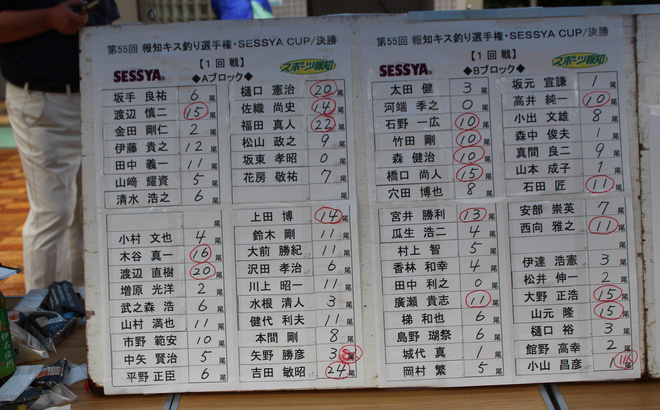 第55回 報知キス釣り選手権・SESSYA CUP/決勝
【1回戦】
SESSYA
◆Aブロック◆
スポーツ報知
坂手 良祐 6尾
渡辺 慎二 15尾
金田 剛仁 2尾
伊藤 貴之 12尾
田中 義一 11尾
山﨑 耀資 5尾
清水 浩之 6尾
樋口 憲治 20尾
佐織 尚史 14尾
福田 真人 22尾
松山 政之 9尾
坂東 孝昭 0尾
花房 敬祐 7尾
尾
尾
小村 文也 4尾
木谷 真一 16尾
渡辺 直樹 20尾
増原 光洋 2尾
武之森 浩 6尾
山村 満也 11尾
市野 範安 10尾
中矢 賢治 5尾
平野 正臣 6尾
上田 博 14尾
鈴木 剛 11尾
大前 勝紀 11尾
沢田 孝治 6尾
川上 昭一 11尾
水根 清人 3尾
健代 利夫 11尾
本間 剛 8尾
矢野 勝彦 尾
吉田 敏昭 24尾
第55回 報知キス釣り選手権・SESSYA CUP/決勝
【1回戦】
SESSYA
◆Bブロック◆
スポーツ報知
太田 健 3尾
河端 季之 0尾
石野 一広 10尾
竹田 剛 10尾
森 健治 10尾
橋口 尚人 15尾
穴田 博也 8尾
坂元 宣謙 1尾
高井 純一 10尾
小出 文雄 8尾
森中 俊夫 1尾
真間 良二 9尾
山本 成子 1尾
石田 匠 11尾
宮井 勝利 13尾
瓜生 浩二 4尾
村上 智 5尾
香林 和幸 4尾
田中 利之 0尾
廣瀬 貴志 11尾
梯 和也 6尾
島野 瑚祭 6尾
城代 真 1尾
岡村 繁 5尾
安部 崇英 7尾
西向 雅之 11尾
伊達 浩憲 3尾
松井 伸一 2尾
大野 正浩 15尾
山元 隆 15尾
樋口 裕 3尾
館野 高幸 2尾
小山 昌彦 尾